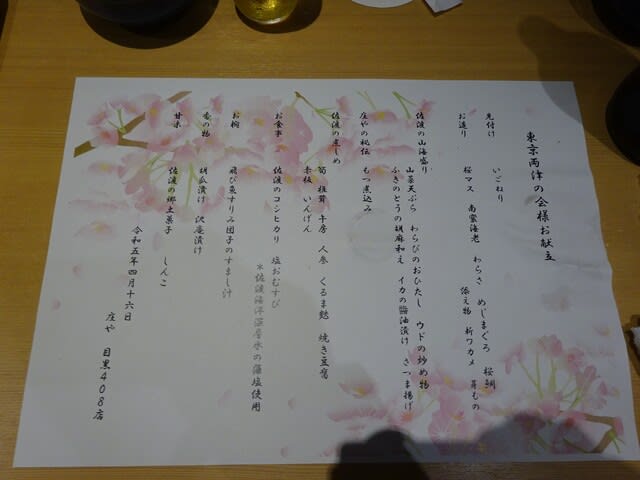 東京両津の会様お献立
先付け いごねり
お造り 桜マス 南蛮海老 わらさ めじまぐろ 桜鯛
添え物 新ワカメ 芽もの
佐渡の山海盛り 山菜天ぷら わらびのおひたし ウドの炒め物
ふきのとうの胡麻和え イカの醤油漬け さつま揚げ
庄やの秘伝 もつ煮込み
佐渡の煮しめ 筍 椎茸 牛房 人参 くるま麩 焼き豆腐
赤板 いんげん
お食事 佐渡のコシヒカリ 塩おむすび
*佐渡海洋深層水の藻塩使用
お椀 飛び魚すりみ団子のすまし汁
香の物 胡瓜漬け 沢庵漬け
甘味 佐渡の郷土菓子 しんこ
令和五年四月十六日
庄や 目黒408店